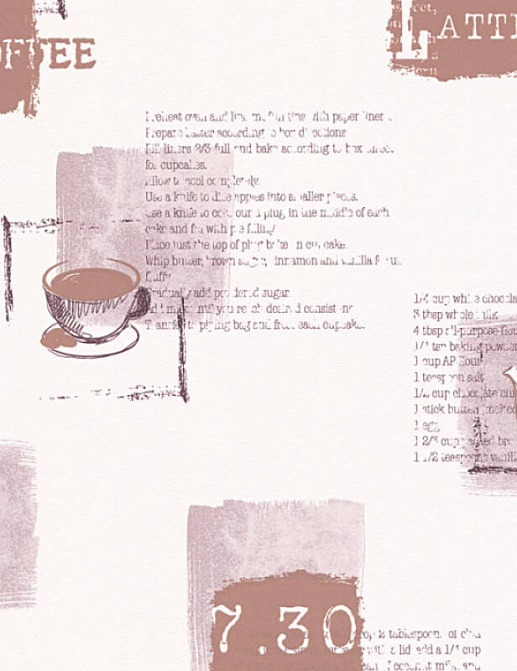 OFFEE
LATTE
Preheat oven and line muffin tins with paper liners.
Prepare batter according to box directions
Fill liners 2/3 full and bake according to box direc.
for cupcakes.
Allow to cool completely.
Use a knife to dice apples into smaller pieces.
Use a knife to core out a plug in the middle of each
cake and fill with pie filling
Place just the top of plug back on cupcake.
Whip butter, brown sugar, cinnamon and vanilla
fluffy
Gradually add powdered sugar.
Add milk until you reach desired consistenc
Transfer to piping bag and frost each cupcake.
1/4 cup white chocola
3 tbsp whole milk
4 tbsp all-purpose flou
1/4 tsp baking powder
1 cup AP flour
1 teaspoon salt
cup chocolate chi
1 stick butter melted
1 egg
1 2/3 cup
1 1/2 teaspoons vanill
7 30
tablespoon of
with a lid add a 1/4 cup
of coconut milk, and